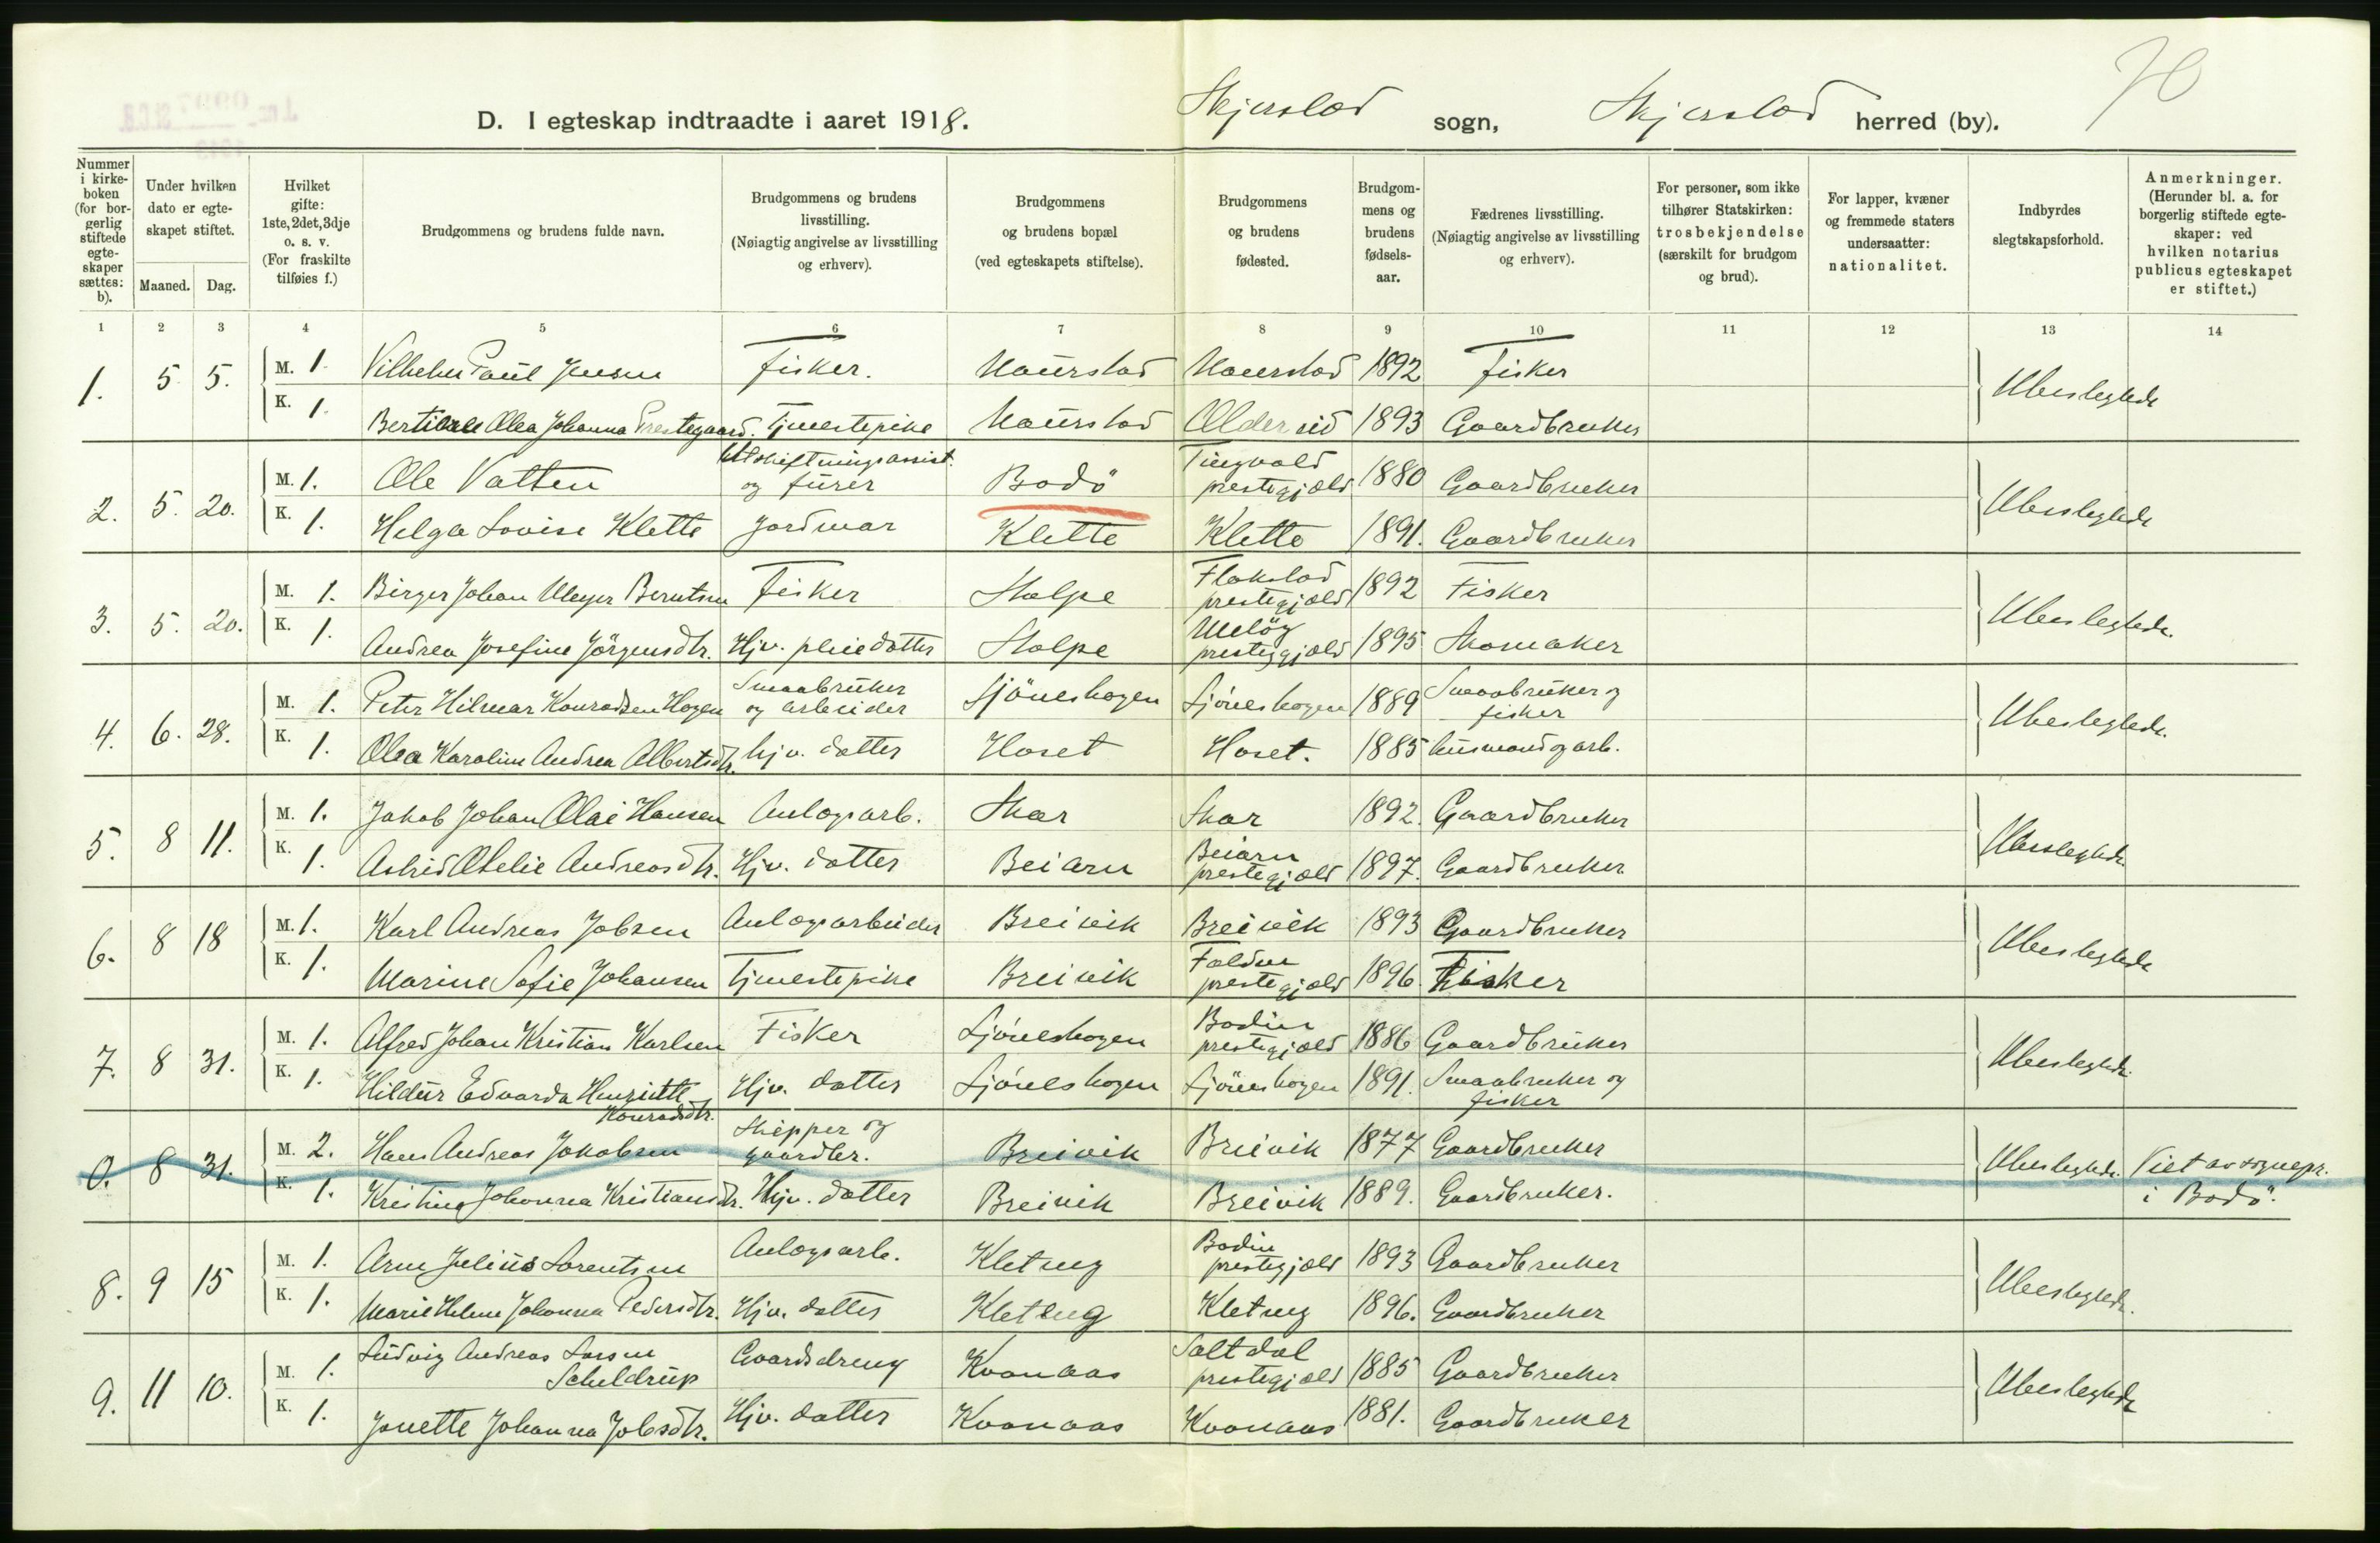 D. I egteskap indtraadte i aaret 1918. Skjerstad sogn, Skjerstad herred (by).
Nummer i kirkeboken (for borgerlig stiftede egteskaper sættes: b).
Under hvilken dato er egteskapet stiftet.
Maaned. Dag.
Hvilket gifte: 1ste, 2det, 3dje o. s. v. (For fraskilte tilføies f.)
Brudgommens og brudens fulde navn.
Brudgommens og brudens livsstilling. (Nøiagtig angivelse av livsstilling og erhverv).
Brudgommens og brudens bopæl (ved egteskapets stiftelse).
Brudgommens og brudens fødested.
Brudgommens og brudens fødselsaar.
Fædrenes livsstilling. (Nøiagtig angivelse av livsstilling og erhverv).
For personer, som ikke tilhører Statskirken: trosbekjendelse (særskilt for brudgom og brud).
For lapper, kvæner og fremmede staters undersaatter: nationalitet.
Indbyrdes slegtskapsforhold.
Anmerkninger. (Herunder bl. a. for borgerlig stiftede egteskaper: ved hvilken notarius publicus egteskapet er stiftet.)
1 2 3 4 5 6 7 8 9 10 11 12 13 14
1. 5 5. M. 1. Vilhelm Paul Jensen Fisker. Naurstad Naurstad 1892 Fisker Ubeslegtede
K. 1. Olea Johanna Prestegaard. Tjenestepike Naurstad Oldereid 1893 Gaardbruker
2. 5. 20. M. 1. Ole Vatten Utskiftningsassist. og furer Bodö Tingvold prestegjæld 1880 Gaardbruker Ubeslegtede
K. 1. Helga Lovise Klette Jordmor Klette Klette 1891. Gaardbruker
3. 5. 20. M. 1. Birger Johan Meyer Berntsen Fisker Stolpe Flakstad prestegjæld 1892 Fisker Ubeslegtede.
K. 1. Andrea Josefine Jörgensdtr. Hjv. pleiedatter Stolpe Melöy prestegjæld 1895 Skomaker
4. 6. 28. M. 1. Peter Hilmar Konradsen Hagen Smaabruker og arbeider Ljöneshagen Ljöneshagen 1889 Smaabruker og fisker Ubeslegtede.
K. 1. Olea Karoline Andrea Albertsdtr. hjv. datter Hoset Hoset. 1885 husmand og arb.
5. 8 11. M. 1. Jakob Johan Olai Hansen Anlægsarb. Skar Skar 1892. Gaardbruker Ubeslegtede.
K. 1. Astrid Otelie Andreasdtr. Hjv. datter Beiarn Beiarn prestegjæld 1897. Gaardbruker
6. 8 18 M. 1. Karl Andreas Jobsen Anlægsarbeider Breivik Breivik 1893 Gaardbruker Ubeslegtede
K. 1. Marine Sofie Johansen Tjenestepike Breivik Folden prestegjæld 1896. Fisker
7. 8 31. M. 1. Alfred Johan Kristian Karlsen Fisker Ljöneshagen Bodin prestegjæld 1886 Gaardbruker Ubeslegtede.
K. 1. Hildur Edvarda Henriette Konradsdtr. Hjv. datter Ljöneshagen Ljöneshagen 1891. Smaabruker og fisker
0. 8 31. M. 2. Hans Andreas Jakobsen Skipper og gaardbr. Breivik Breivik 1877 Gaardbruker Ubeslegtede. Viet av sognepr. i Bodö.
K. 1. Kristine Johanna Kristiansdtr. Hjv. datter Breivik Breivik 1889. Gaardbruker.
8. 9 15 M. 1. Arne Julius Lorentsen Anlægsarb. Kletung Bodin prestegjæld 1893 Gaardbruker Ubeslegtede.
K. 1. Marie Helene Johanna Pedersdtr. Hjv. datter Kletung Kletung 1896. Gaardbruker
9. 11 10. M. 1. Ludvig Andreas Larsen Scheldrup Gaardsdreng Kvanaas Saltdal prestegjæld 1885 Gaardbruker Ubeslegtede
K. 1. Jonette Johanna Jobsdtr. Hjv. datter Kvanaas Kvanaas 1881. Gaardbruker